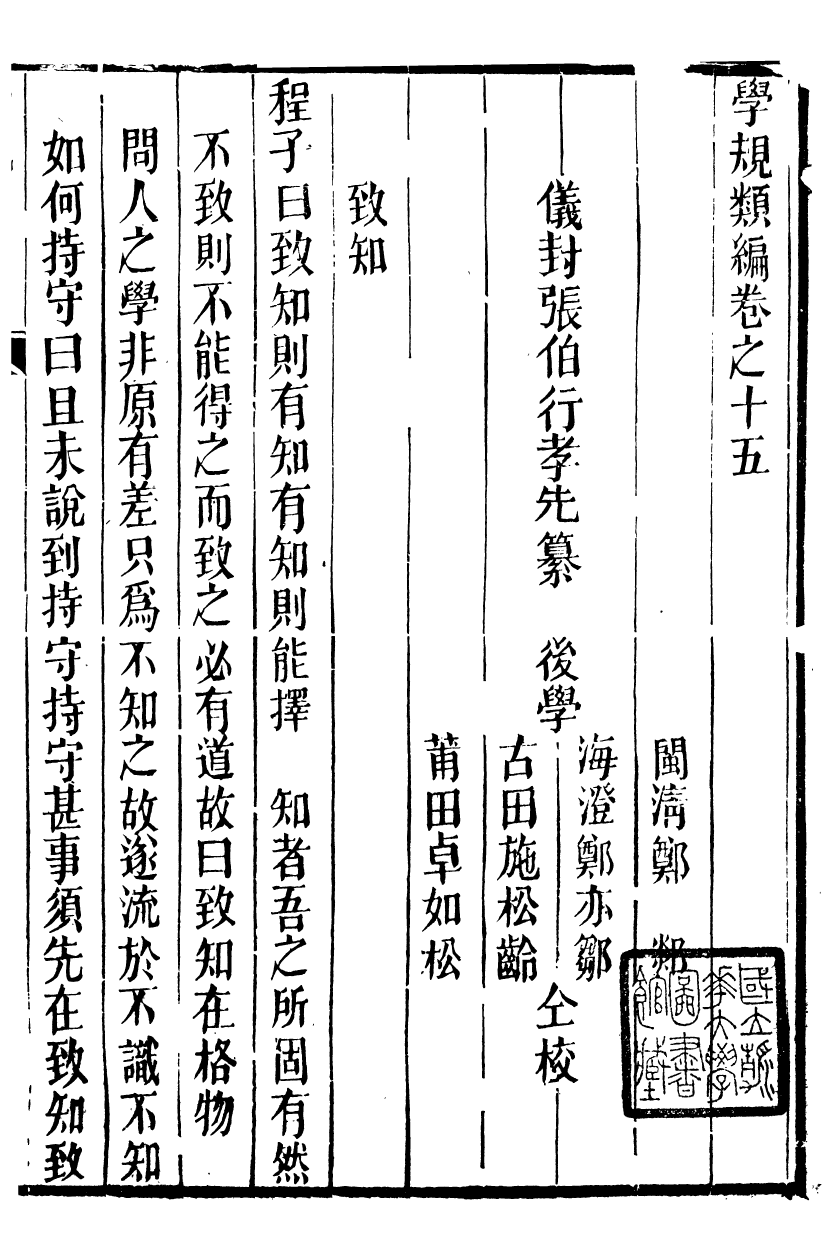 學規類編卷之十五
閩淸鄭
海澄鄭亦鄒
儀封張伯行孝先纂　後學　仝校
古田施松齡
莆田卓如松
致知
程子曰致知則有知有知則能擇　知者吾之所固有然
不致則不能得之而致之必有道故曰致知在格物
問人之學非原有差只爲不知之故遂流於不識不知
如何持守曰且未說到持守持守甚事須先在致知致
國立清華大學圖書館藏